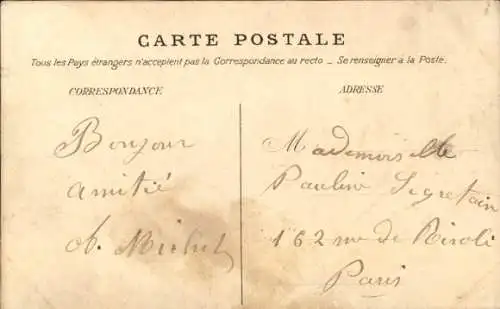 CARTE POSTALE
Tous les Pays étrangers n'acceptent pas la Correspondance au recto _ Se renseigner à la Poste.
CORRESPONDANCE
Bonjour
amitié
A. Michel
ADRESSE
Mademoiselle
Pauline Segretain
162 rue de Rivoli
Paris